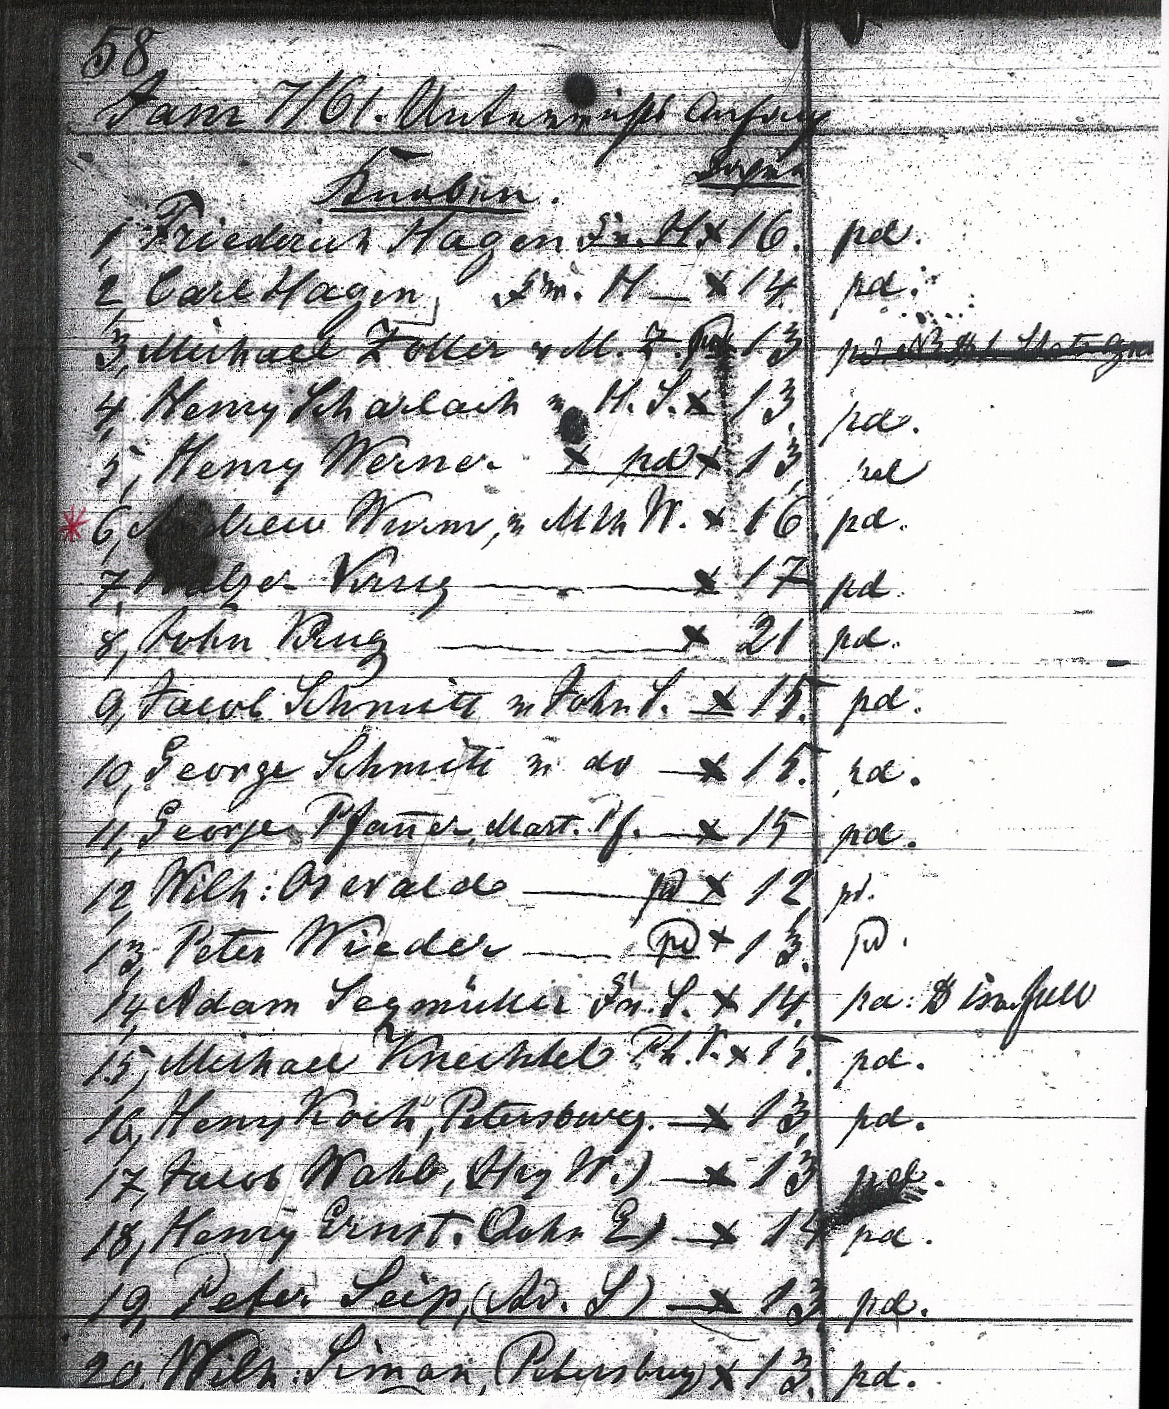 58
Jan 7/61. Unterrichts Anfang
Knaben.
1, Friederich Hagen Fr. H. x 16. pd.
2, Carl Hagen, Fr. H — x 14 pd.
3, Michael Zoller M. Z. pd 13 pd
4, Henry Scharlach H. S. x 13, pd.
5, Henry Werner x pd x 13, pd
6, Andrew Wurm, W. x 16, pd.
7, Krug — x 17 pd
8, John Krug — x 21 pd.
9, Jacob Schmitt John S. x 15. pd.
10, George Schmitt do — x 15. pd.
11, George Pfanner, Mart. Pf. — x 15 pd.
12, Wilh: Oswald — pd x 12, pd.
13, Peter Wieder — pd x 13, pd.
14, Adam Segmüller Fr. S. x 14, pd:
15, Michael Knechtel Ph. K. x 15. pd.
16, Henry Koch, Petersburg. — x 13, pd.
17, Jacob Wahl, (Hy W.) — x 13 pd.
18, Henry Ernst. (John E) — x 14 pd.
19, Peter Seip, (Ad. S) — x 13, pd.
20, Wilh: Simon, (Petersburg) x 13, pd.